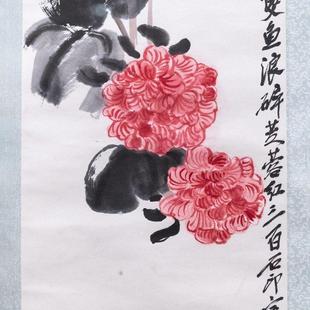 鱼浪碎芙蓉红三百石印富